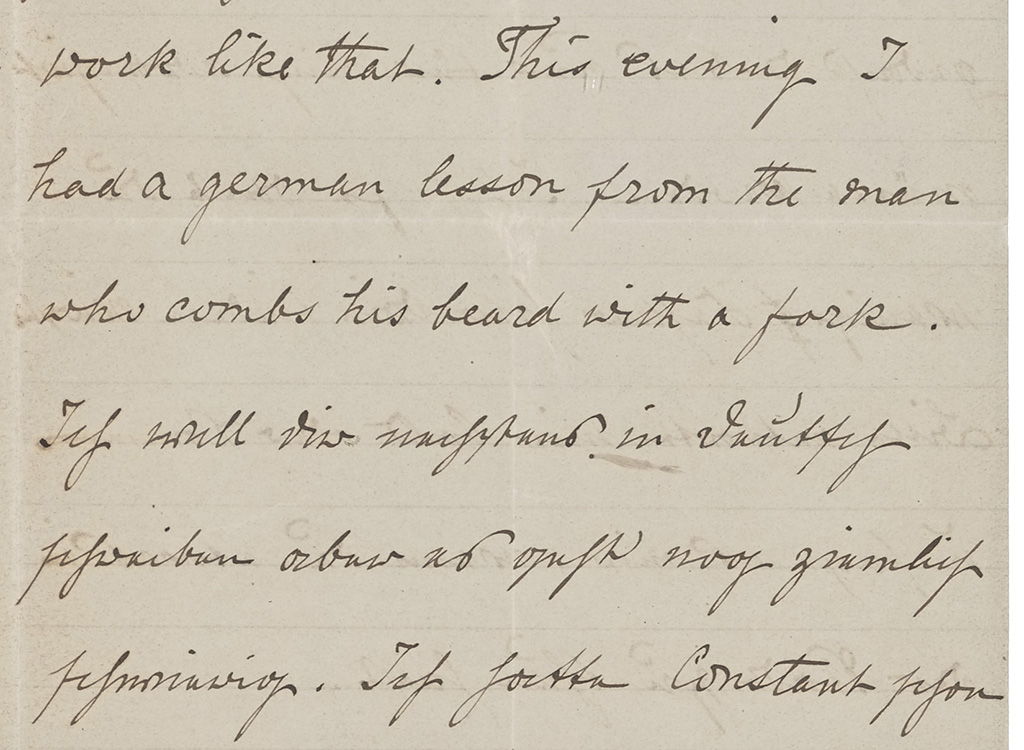 work like that. This evening I
had a german lesson from the man
who combs his beard with a fork.
Ich will dir nachstens in Deutsch
schreiben aber es geht noch ziemlich
schwierig. Ich hatte Constant schon